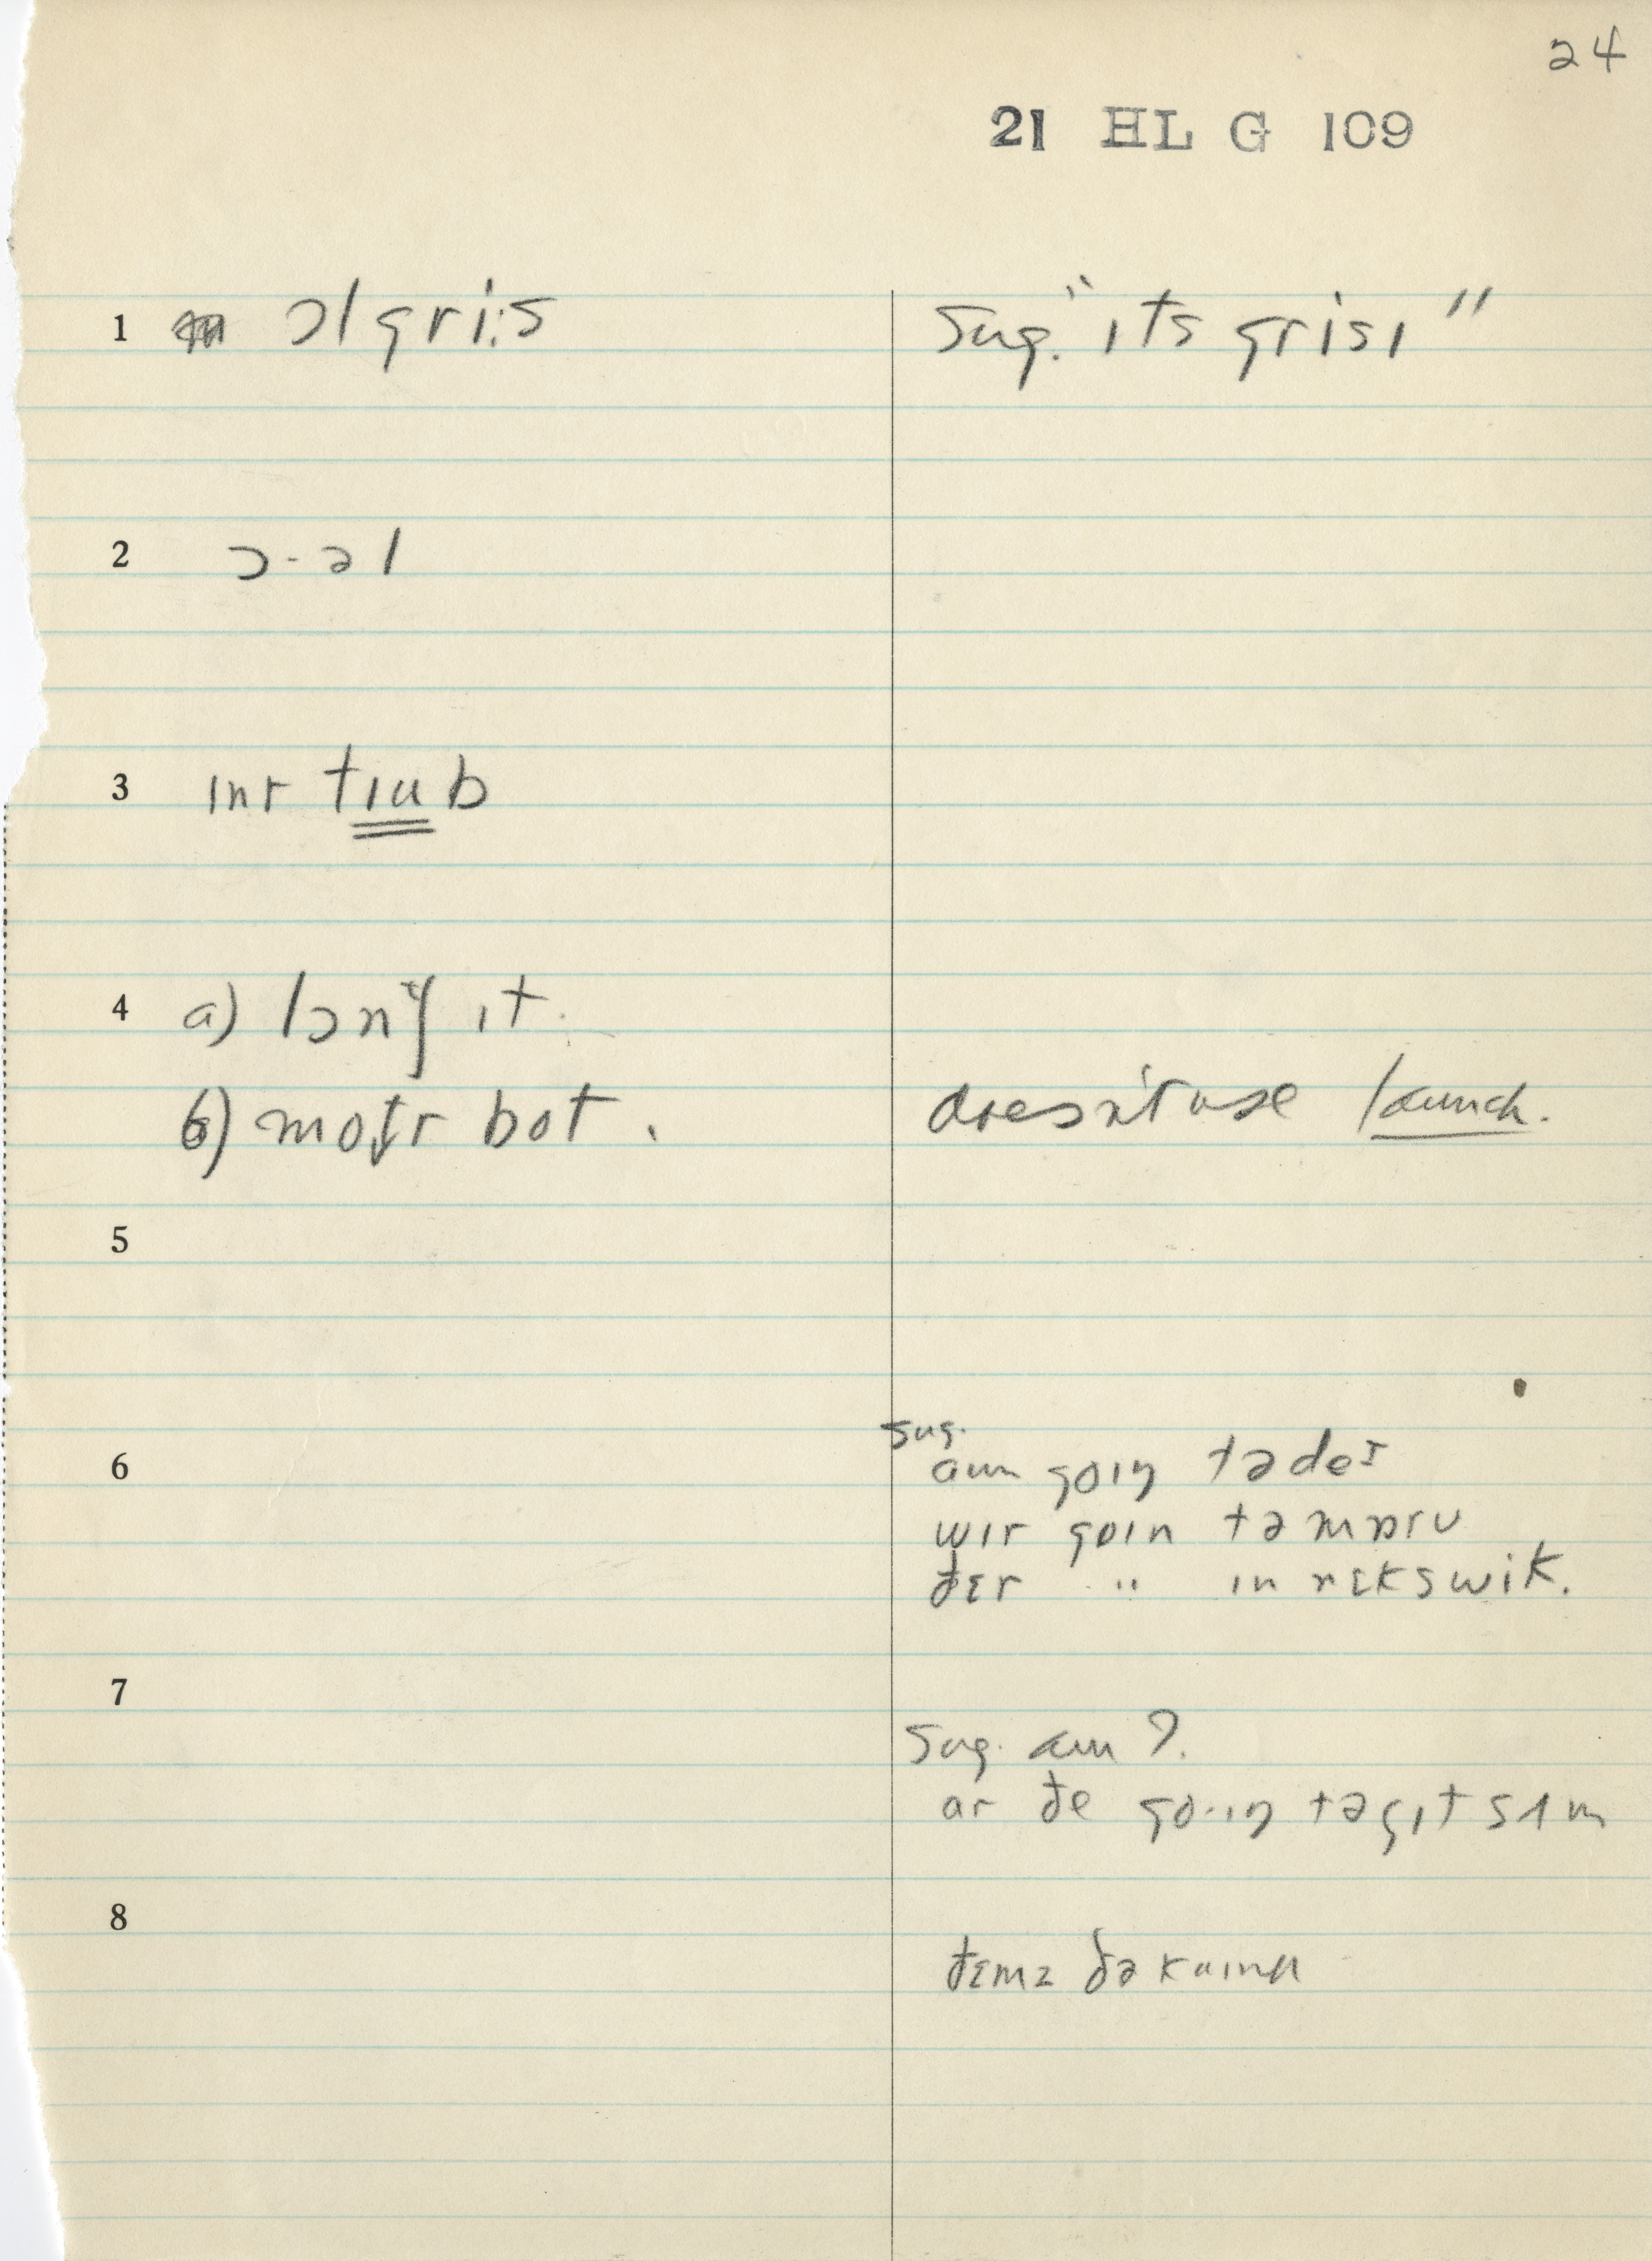 24
21 HL G 109
1 ɔl gri:s sug. "ɪts grisɪ"
2 ɔ-əl
3 ɪnr tɪub
4 a) lɔntʃ ɪt.
b) motr bot. doesn't use launch.
5
6 sug.
aɪm goɪŋ tədeɪ
wɪr goɪn təmɒrʊ
ðɛr " ɪn nɛkswik.
7
sug. am?.
ar ðe go·ɪŋ təgɪt sʌm
8
ðɛmz ðə kaɪnd